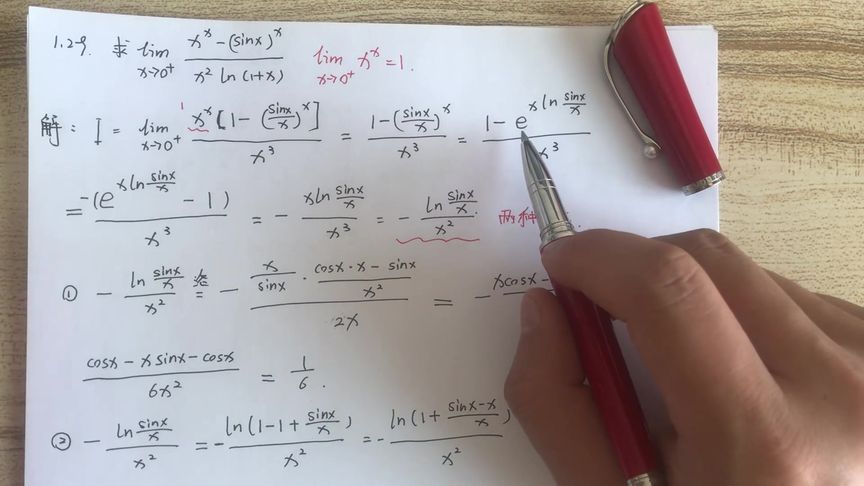 1.29. 求 lim x→0⁺ (x^x - (sinx)^x) / (x² ln(1+x)) lim x→0⁺ x^x = 1.
解: I = lim x→0⁺ x^x [1 - (sinx/x)^x] / x³ = (1 - (sinx/x)^x) / x³ = (1 - e^(x ln sinx/x)) / x³
= -(e^(x ln sinx/x) - 1) / x³ = - (x ln sinx/x) / x³ = - (ln sinx/x) / x² 两种
① - (ln sinx/x) / x² 洛= - (x/sinx · (cosx·x - sinx)/x²) / 2x = - xcosx -
(cosx - x sinx - cosx) / 6x² = 1/6.
② - (ln sinx/x) / x² = - ln(1-1+ sinx/x) / x² = - ln(1+ (sinx-x)/x) / x²